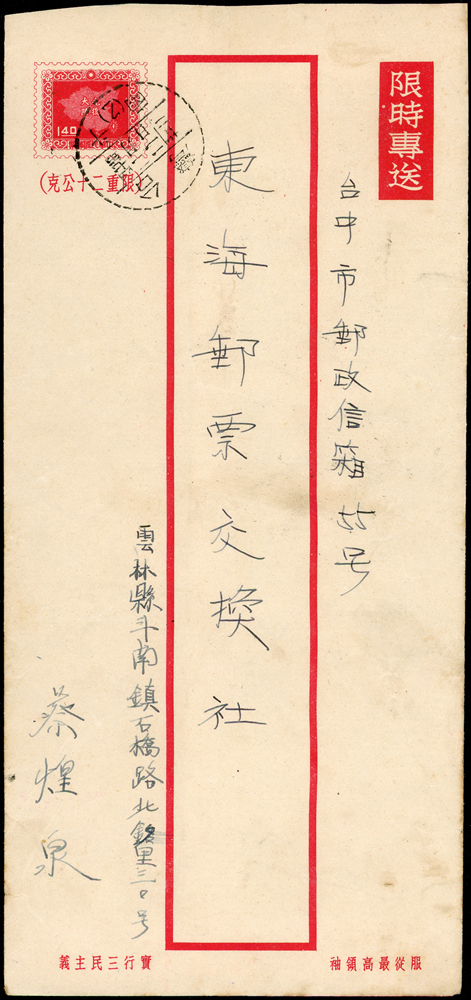 限時專送
台中市郵政信箱55号
東海郵票交換社
140
(限重二十公克)
雲林縣斗南鎮石橋路北銘里三0号
蔡煌泉
服從最高領袖
實行三民主義